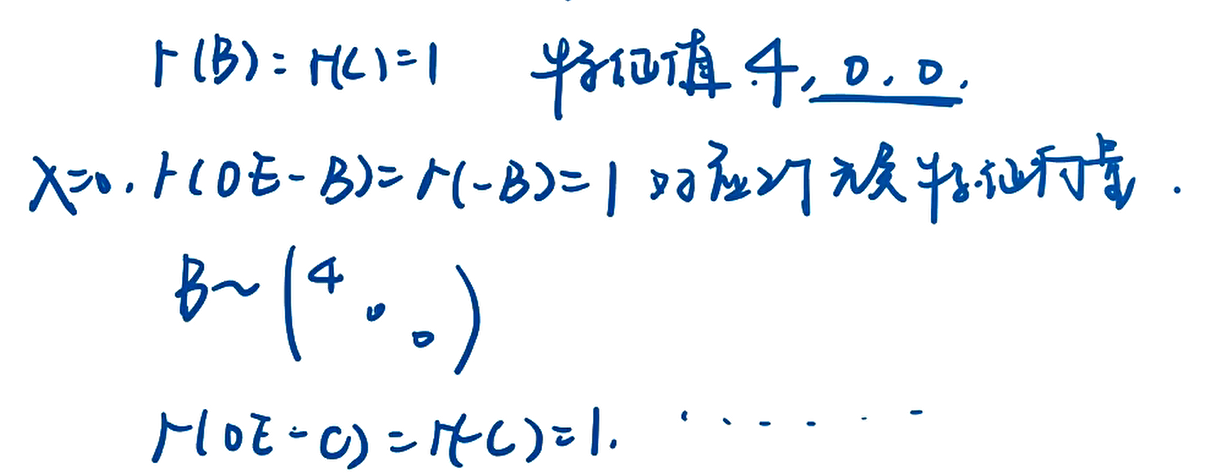 r(B)=r(C)=1 特征值 4, 0, 0.
λ=0. r(0E-B)=r(-B)=1 对应2个无关特征向量.
B~(4 0 0)
r(0E-C)=r(-C)=1. ......